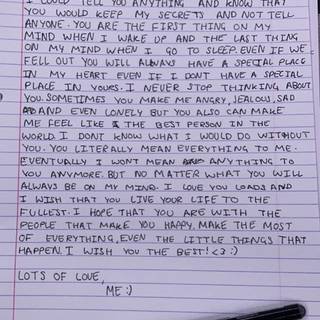 I COULD TELL YOU ANYTHING AND KNOW THAT
YOU WOULD KEEP MY SECRETS AND NOT TELL
ANYONE. YOU ARE THE FIRST THING ON MY
MIND WHEN I WAKE UP AND THE LAST THING
ON MY MIND WHEN I GO TO SLEEP. EVEN IF WE
FELL OUT YOU WILL ALWAYS HAVE A SPECIAL PLACE
IN MY HEART EVEN IF I DONT HAVE A SPECIAL
PLACE IN YOURS. I NEVER STOP THINKING ABOUT
YOU. SOMETIMES YOU MAKE ME ANGRY, JEALOUS, SAD
AND EVEN LONELY BUT YOU ALSO CAN MAKE
ME FEEL LIKE THE BEST PERSON IN THE
WORLD. I DONT KNOW WHAT I WOULD DO WITHOUT
YOU. YOU LITERALLY MEAN EVERYTHING TO ME.
EVENTUALLY I WONT MEAN ANYTHING TO
YOU ANYMORE. BUT NO MATTER WHAT YOU WILL
ALWAYS BE ON MY MIND. I LOVE YOU LOADS AND
I WISH THAT YOU LIVE YOUR LIFE TO THE
FULLEST. I HOPE THAT YOU ARE WITH THE
PEOPLE THAT MAKE YOU HAPPY. MAKE THE MOST
OF EVERYTHING, EVEN THE LITTLE THINGS THAT
HAPPEN. I WISH YOU THE BEST! <3 :)
LOTS OF LOVE,
ME :)